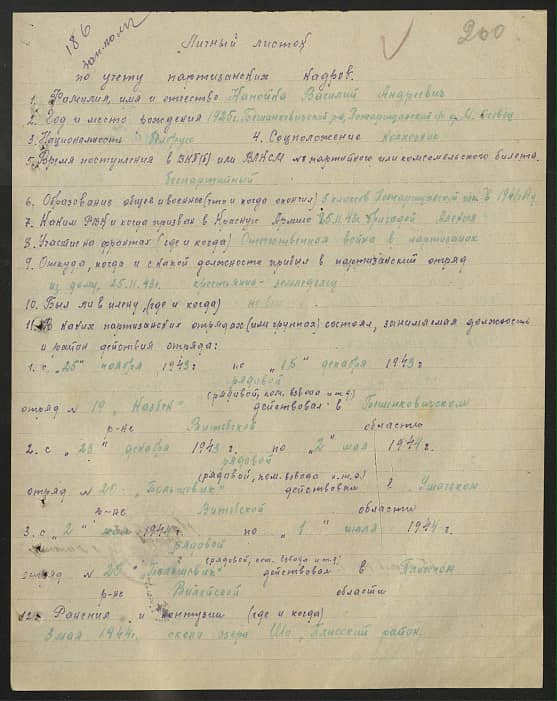 186
200
Личный листок
по учету партизанских кадров.
1. Фамилия, имя и отчество Канойка Василий Андреевич
2. Год и место рождения 1925г. Бешенковичский р-н,
3. Национальность белорус 4. Соцположение колхозник
5. Время поступления в ВКП(б) или ВЛКСМ № партийного или комсомольского билета.
беспартийный
6. Образование общее и военное (что и когда окончил) 5 классов в 1941 году
7. Каким РВК и когда призван в Красную Армию 25.11.43г. бригадой Алексея
8. Участие на фронтах (где и когда) Отечественная война в партизанах
9. Откуда, когда и с какой должности прибыл в партизанский отряд
из дому, 25.11.43г. крестьянин-земледелец
10. Был ли в плену, (где и когда) не был
11. В каких партизанских отрядах (или группах) состоял, занимаемая должность
и район действия отряда:
1. с „25" ноября 1943 г по „15" декабря 1943 г
рядовой
(рядовой, ком. взвода и т.д)
отряд № 19 действовал в Бешенковичском
р-не Витебской области
2. с „23" декабря 1943 г. по „2" мая 1944 г.
рядовой
(рядовой, ком. взвода и т.д.)
отряд № 20 „Большевик" действовал в Ушачском
р-не Витебской области
3. с „2" мая 1944 г по „1" июля 1944 г.
рядовой
(рядовой, ком. взвода и т.д)
отряд № 20 „Большевик" действовал в Плисском
р-не Вилейской области
12. Ранения и контузии (где и когда)
3 мая 1944г. около озера Шо, Плисский район.